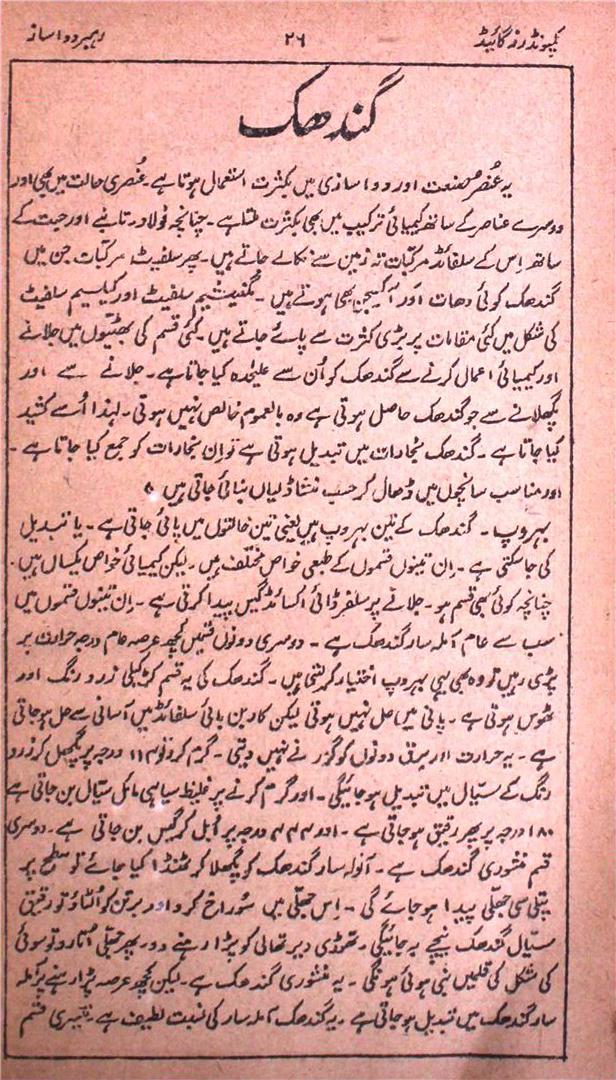 کمپونڈرز گائیڈ ۲۶ رہبر دواساز
گندھک
یہ عُنصر صنعت اور دواسازی میں بکثرت استعمال ہوتا ہے۔ عُنصری حالت میں بھی اور
دوسرے عناصر کے ساتھ کیمیائی ترکیب میں بھی بکثرت ملتا ہے۔ چنانچہ فولاد۔ تانبے اور جست کے
ساتھ اِس کے سلفائڈ مرکبات تہ زمین سے نکالے جاتے ہیں۔ پھر سلفیٹ مرکبات جن میں
گندھک کوئی دھات اور آکسیجن بھی ہوتے ہیں۔ مگنیشیم سلفیٹ اور کیلسیم سلفیٹ
کی شکل میں کئی مقامات پر بڑی کثرت سے پائے جاتے ہیں۔ کئی قسم کی بھٹیوں میں جلانے
اور کیمیائی اعمال کرنے سے گندھک کو اُن سے علیٰحدہ کیا جاتا ہے۔ جلانے سے اور
پگھلانے سے جو گندھک حاصل ہوتی ہے وہ بالعموم خالص نہیں ہوتی۔ لہذا اُسے کشید
کیا جاتا ہے۔ گندھک بخارات میں تبدیل ہوتی ہے تو اِن بخارات کو جمع کیا جاتا ہے۔
اور مناسب سانچوں میں ڈھال کر حسب منشا ڈلیاں بنائی جاتی ہیں۔
بہروپ۔ گندھک کے تین بہروپ ہیں یعنی تین حالتوں میں پائی جاتی ہے۔ یا تبدیل
کی جاسکتی ہے۔ اِن تینوں قسموں کے طبعی خواص مختلف ہیں۔ لیکن کیمیائی خواص یکساں ہیں۔
چنانچہ کوئی بھی قسم ہو۔ جلانے پر سلفر ڈائی آکسائڈ گیس پیدا کرتی ہے۔ اِن تینوں قسموں میں
سب سے عام آملہ سار گندھک ہے۔ دوسری دونوں قسمیں کچھ عرصہ عام درجہ حرارت پر
پڑی رہیں تو وہ بھی یہی بہروپ اختیار کرلیتی ہیں۔ گندھک کی یہ قسم کڑکیلی زرد رنگ اور
ٹھوس ہوتی ہے۔ پانی میں حل نہیں ہوتی لیکن کاربن بائی سلفائڈ میں آسانی سے حل ہوجاتی
ہے۔ یہ حرارت اور برق دونوں کو گزرنے نہیں دیتی۔ گرم کرو تو ۱۱۴ درجہ پر پگھل کر زرد
رنگ کے سیّال میں تبدیل ہوجائیگی۔ اور گرم کرنے پر غلیظ سیاہی مائل سیّال بن جاتی ہے
۱۸۰ درجہ پر پھر رقیق ہوجاتی ہے۔ اور ۴۴۴ درجہ پر اُبل کر گیس بن جاتی ہے۔ دوسری
قسم منشوری گندھک ہے۔ آنولہ سار گندھک کو پگھلا کر ٹھنڈا کیا جائے تو سطح پر
پتلی سی جھلّی پیدا ہوجائے گی۔ اِس جھلّی میں سُوراخ کرو اور برتن کو اُلٹاؤ تو رقیق
سیّال گندھک نیچے بہ جائیگی۔ تھوڑی دیر تھالی کو پڑا رہنے دو۔ پھر جھلّی اُتارو تو سوئی
کی شکل کی قلمیں بنی ہوئی ہونگی۔ یہ منشوری گندھک ہے۔ لیکن کچھ عرصہ پڑا رہنے پر آملہ
سار گندھک میں تبدیل ہوجاتی ہے۔ یہ گندھک آملہ سار کی نسبت لطیف ہے۔ تیسری قسم